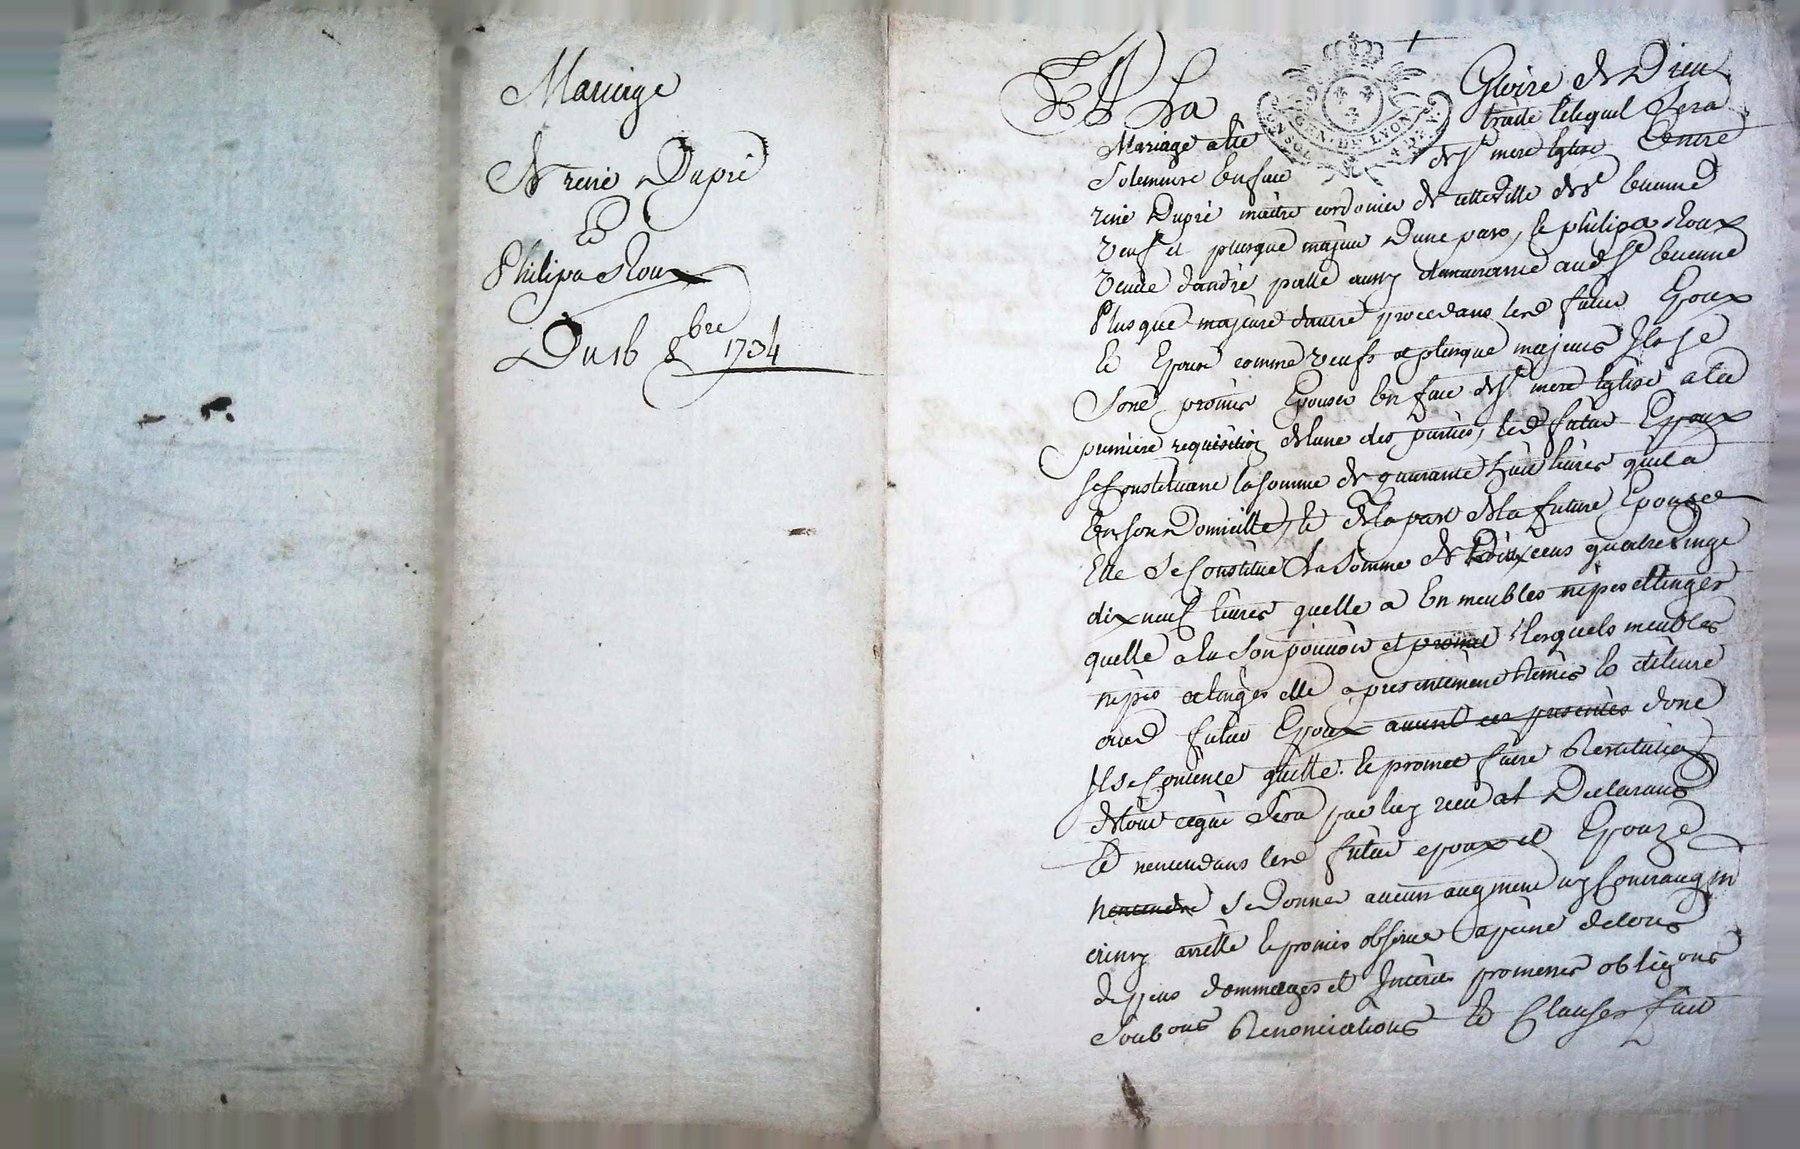 Mariage
De rené Dupré
Et
Philipa Roux
Du 16 8bre 1734
A La Gloire de Dieu
CONSOL GEN. DE LYON
Mariage a été traité lequel sera
Solemnisé En face de Ste mere Eglise Entre
rené Dupré maitre cordonier de cette ville de St Etienne
veuf et plusque majeur Dune part, Et philipa Roux
veuve d'andré aussy demeurante aud St Etienne
Plusque majeure dautre procedans lesd futur Epoux
Et Epouse comme veufs et plusque majeurs Ils se
Sont promis Epouser En face de Ste mere Eglise a la
premiere requisition de lune des parties, led futur Epoux
se Constituant la somme de quarante huit livres quil a
En son Domicille, Et de la part de la future Epouse
Elle se Constitue La somme de cens quatre vingt
dix neuf livres quelle a En meubles nipes et linges
quelle a En son pouvoir et promet lesquels meubles
nipes et linges elle a presentement remis Et delivré
aud futur Epoux avant ces presentes dont
Il se Contente quitte Et promet faire Restitution
de tout ce qui sera par luy receu at Declarans
Et nentendans lesd futur epoux et Epouze
nentendre se Donner aucun augment ny
arretté Et promis observer a peine de tous
depens dommages et Interets promesses obligons
Soubons Renonciations Et Clauses fait